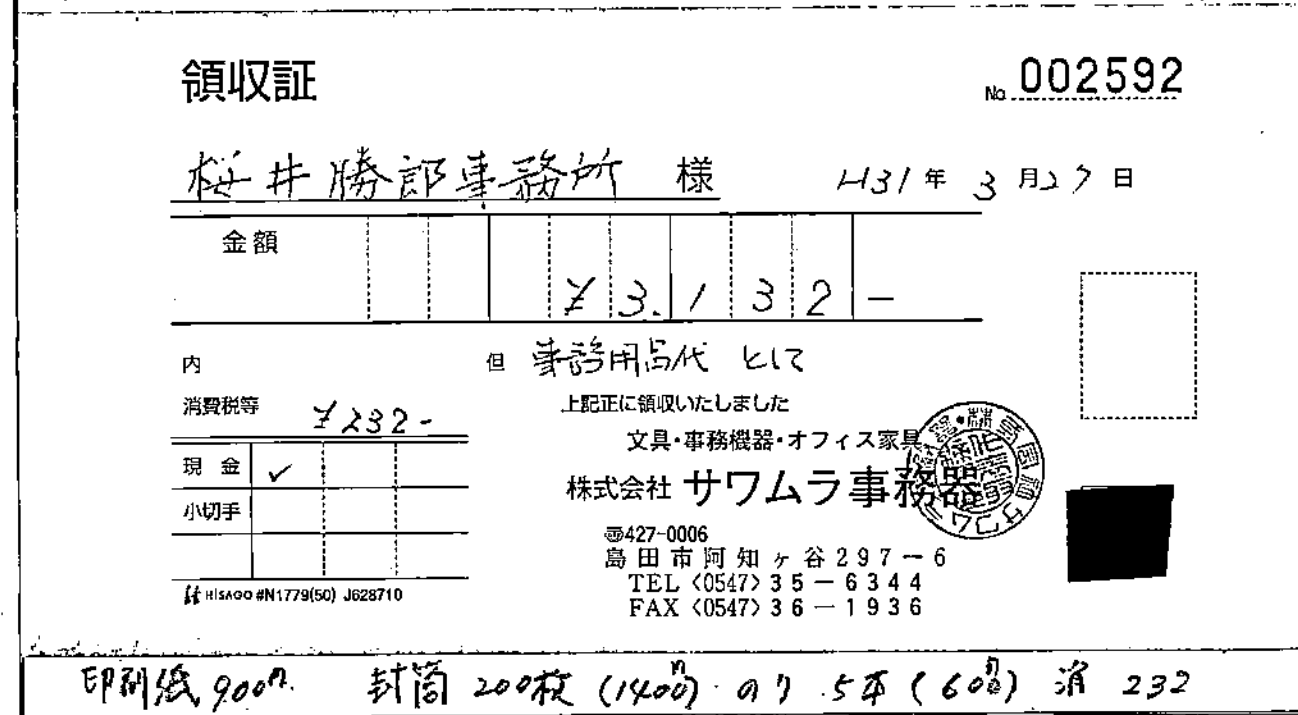 領収証
No. 002592
桜井勝郎事務所 様
H31年 3月27日
金額 ¥3.132-
内
但 事務用品代 として
消費税等 ¥232-
現金 ✓
小切手
上記正に領収いたしました
文具・事務機器・オフィス家具
株式会社 サワムラ事務器
〒427-0006
島田市阿知ヶ谷297-6
TEL〈0547〉35-6344
FAX〈0547〉36-1936
HISAGO #N1779(50) J628710
印刷紙 900円 封筒 200枚 (1400円) のり 5本 (600円) 消 232